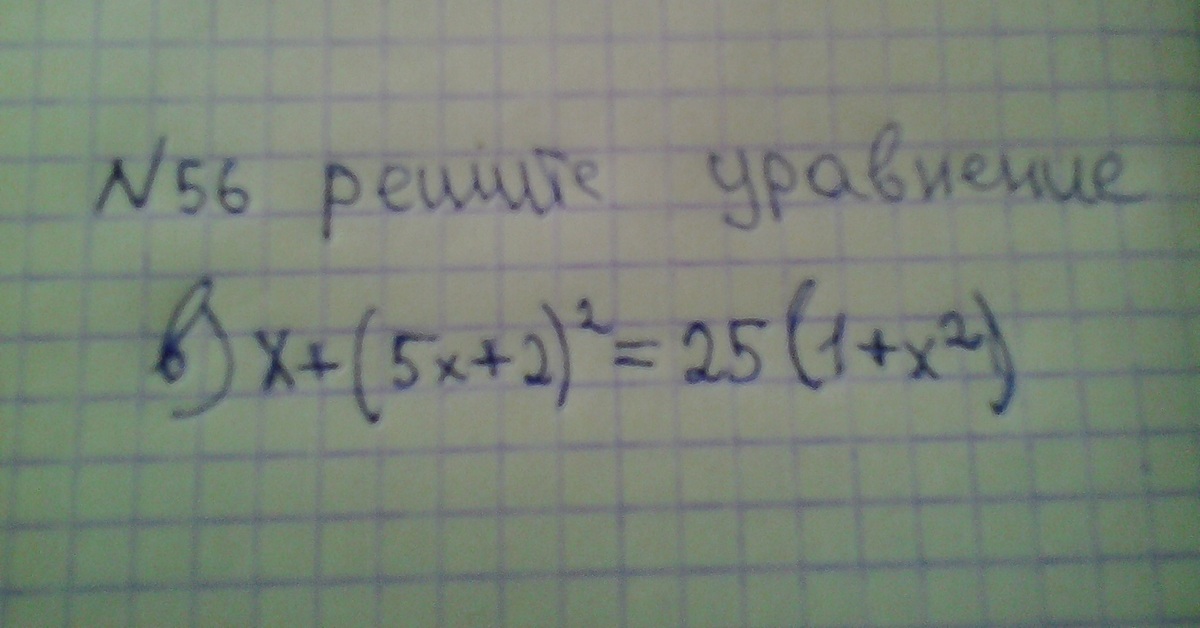 N56 решите уравнение
в) x+(5x+2)²=25(1+x²)